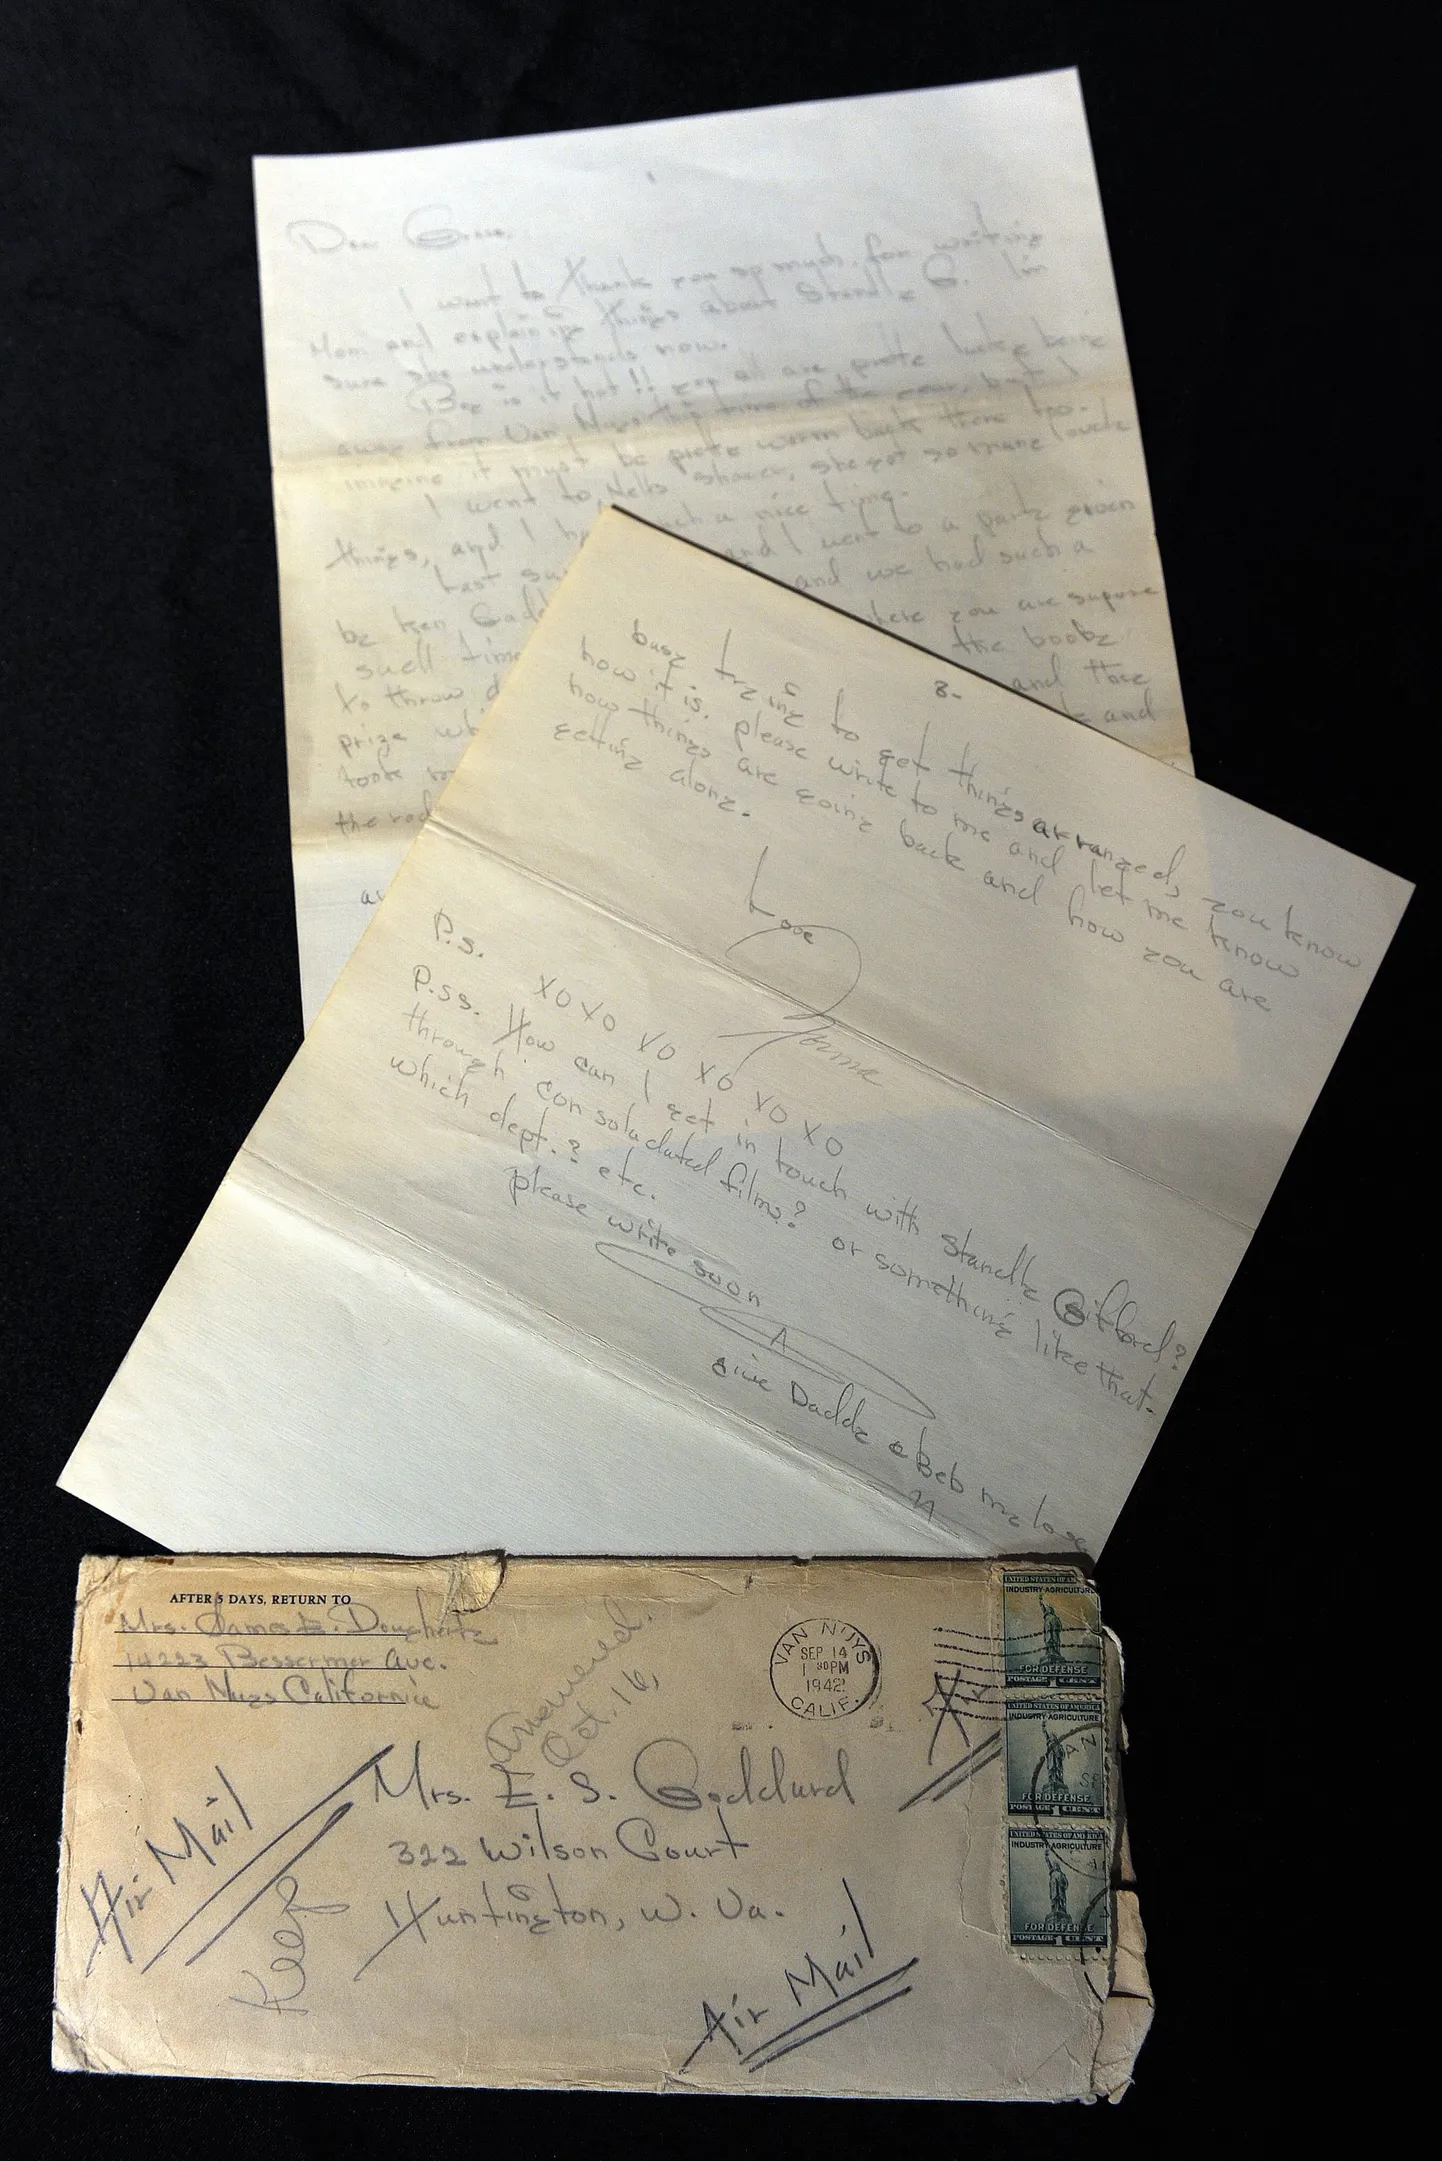 Dear Grace,
I want to thank you so much, for writing
Mom and explaining things about Standly G. I'm
sure she understands now.
Boy is it hot!! you all are prette lucky being
away from Van Nuys this time of the year, but I
imagine it must be prette warm back there too.
I went to Nells shower, she got so many lovely
things, and I ha such a nice time.
Last su and I went to a party given
by Ken and we had such a
swell time where you are supose
to throw d the booby
prize wh and they
took and
the
8-
busy trying to get things arranged, you know
how it is. please write to me and let me know
how things are going back and how you are
getting along.
Love
Norma
P.s. XO XO XO XO XO XO
P.ss. How can I get in touch with Standly Gifford?
through consoladated films? or something like that.
which dept.? etc.
please write soon
give Daddy & Beb my love
N
AFTER 5 DAYS, RETURN TO
Mrs. James E. Dougherty
14223 Bessermer Ave.
Van Nuys California
Answered.
Oct. 16,
VAN NUYS
SEP 14
1 30PM
1942
CALIF.
Air
Mrs. E. S. Goddard
322 Wilson Court
Huntington, W. Va.
Air Mail
Keep
Air Mail
UNITED STATES OF AMERICA
INDUSTRY AGRICULTURE
FOR DEFENSE
POSTAGE 1 CENT
UNITED STATES OF AMERICA
INDUSTRY AGRICULTURE
FOR DEFENSE
POSTAGE 1 CENT
UNITED STATES OF AMERICA
INDUSTRY AGRICULTURE
FOR DEFENSE
POSTAGE 1 CENT